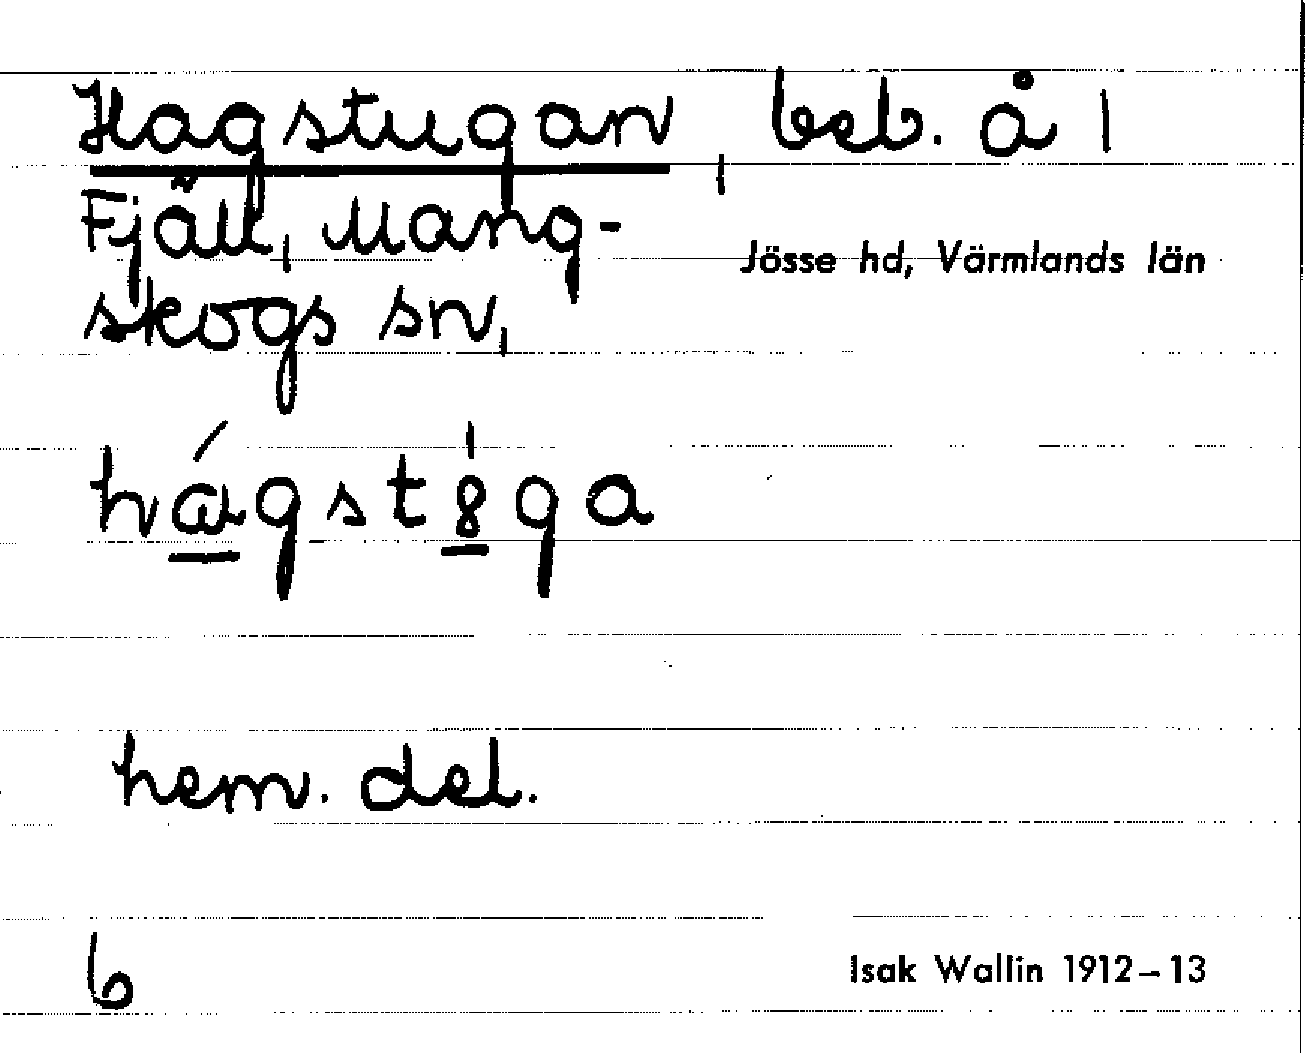 Hagstugan, beb. å 1
Fjäll, Mang-
Jösse hd, Värmlands län
skogs sn,
hágst8ga
hem. del.
6
Isak Wallin 1912–13